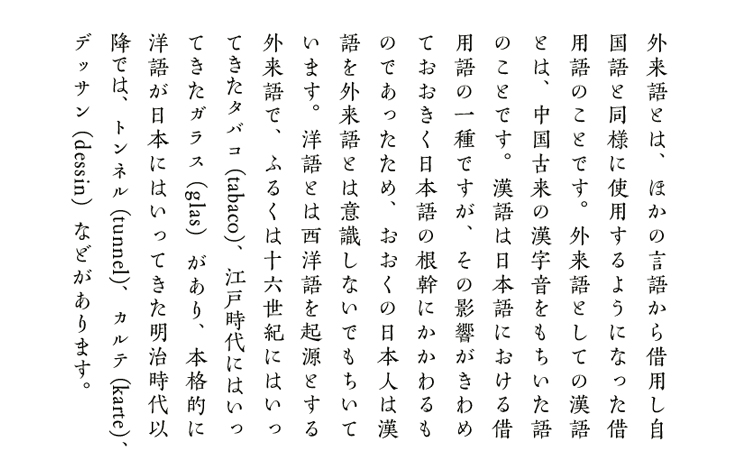 外来語とは、ほかの言語から借用し自
国語と同様に使用するようになった借
用語のことです。外来語としての漢語
とは、中国古来の漢字音をもちいた語
のことです。漢語は日本語における借
用語の一種ですが、その影響がきわめ
ておおきく日本語の根幹にかかわるも
のであったため、おおくの日本人は漢
語を外来語とは意識しないでもちいて
います。洋語とは西洋語を起源とする
外来語で、ふるくは十六世紀にはいっ
てきたタバコ (tabaco)、江戸時代にはいっ
てきたガラス (glas) があり、本格的に
洋語が日本にはいってきた明治時代以
降では、トンネル (tunnel)、カルテ (karte)、
デッサン (dessin) などがあります。